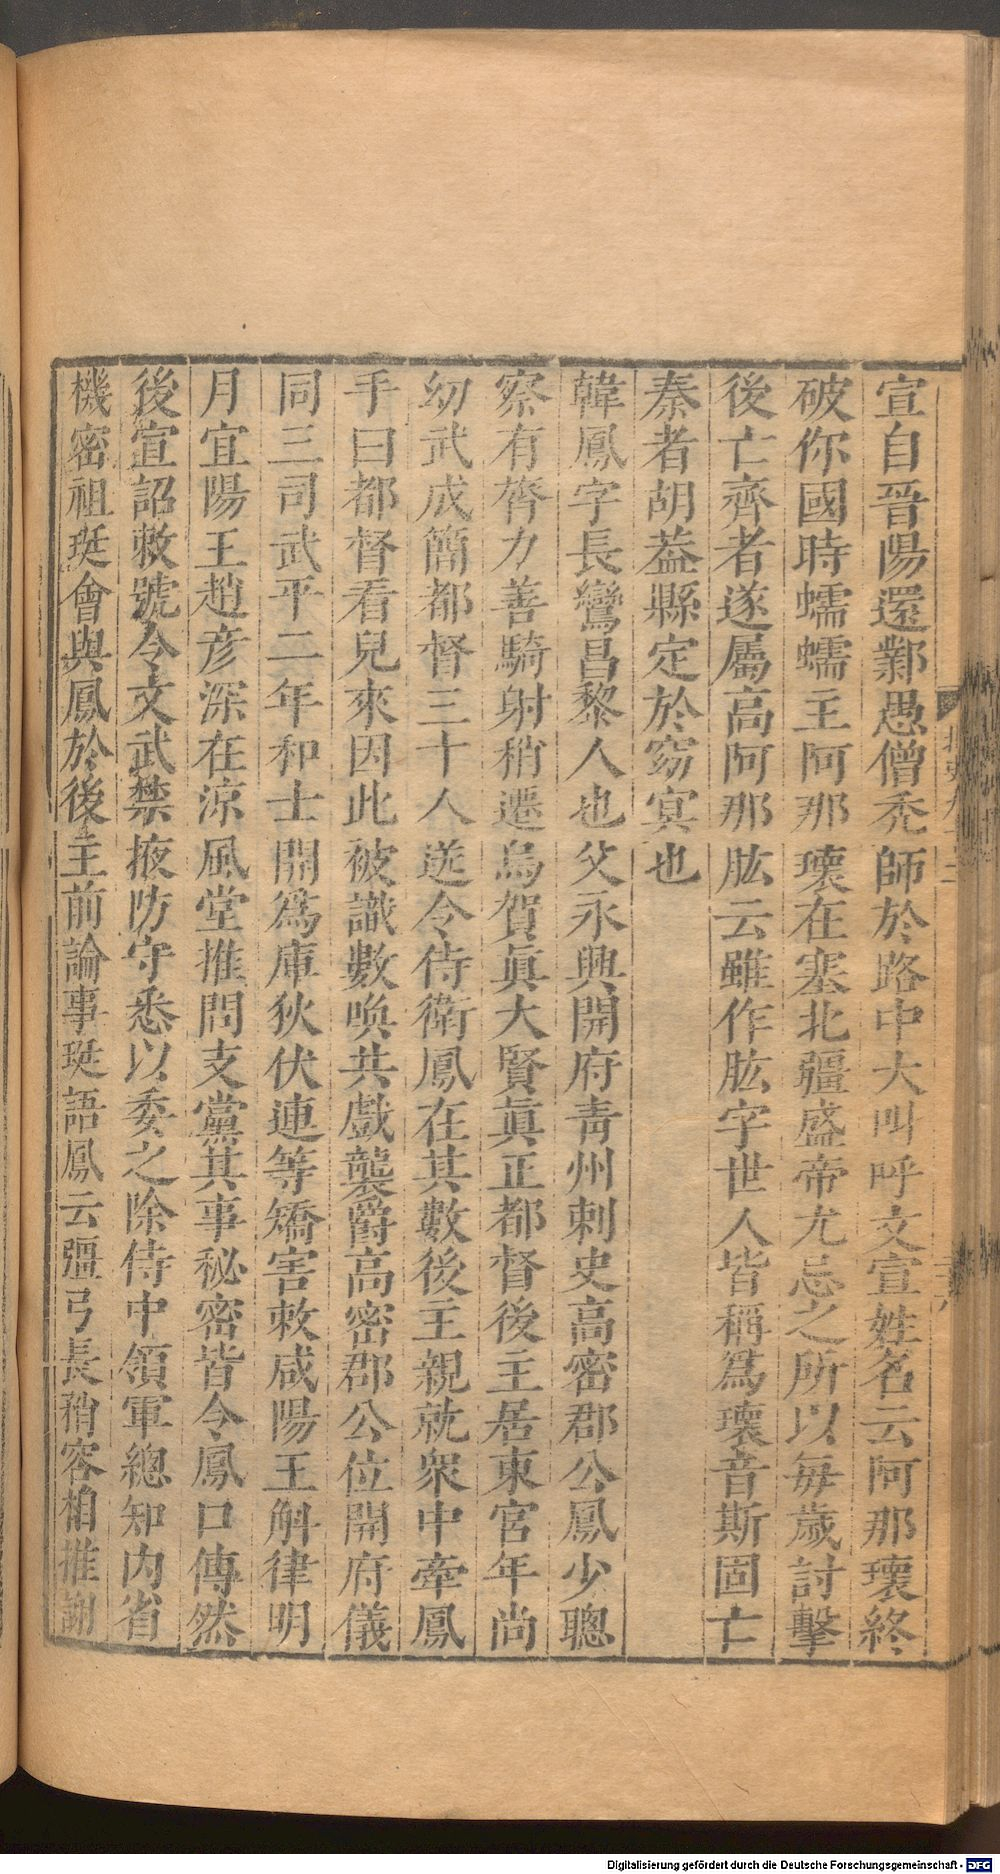 宣自晉陽還鄴愚僧禿師於路中大叫呼文宣姓名云阿那瓌終
破你國時蠕蠕王阿那瓌在塞北疆盛帝尤忌之所以每歲討擊
後亡齊者遂屬高阿那肱云雖作肱字世人皆稱爲瓌音斯固亡
秦者胡葢縣定於窈冥也
韓鳳字長鸞昌黎人也父永興開府靑州刺史高密郡公鳳少聰
察有膂力善騎射稍遷烏賀眞大賢眞正都督後主居東宮年尚
幼武成簡都督三十人送令侍衛鳳在其數後主親就衆中牽鳳
手曰都督看兒來因此被識數喚共戲襲爵高密郡公位開府儀
同三司武平二年和士開爲庫狄伏連等矯害敕咸陽王斛律明
月宜陽王趙彥深在涼風堂推問支黨其事秘密皆令鳳口傳然
後宣詔敕號令文武禁掖防守悉以委之除侍中領軍總知內省
機密祖珽會與鳳於後主前論事珽語鳳云彊弓長矟容相推謝
Digitalisierung gefördert durch die Deutsche Forschungsgemeinschaft - DFG